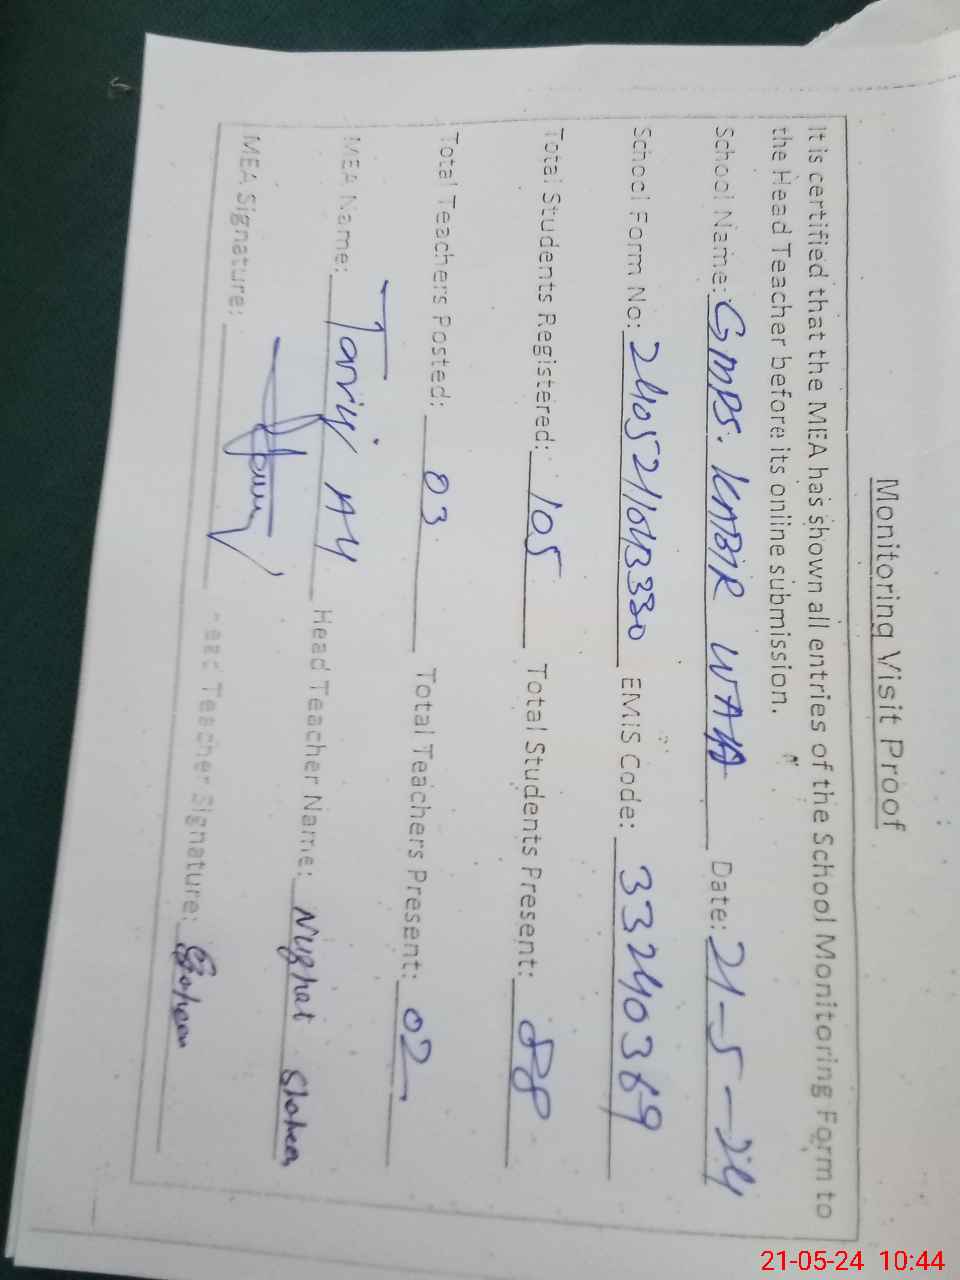 Monitoring Visit Proof
It is certified that the MEA has shown all entries of the School Monitoring Form to
the Head Teacher before its online submission.
School Name: GMPS. KABIR WALA Date: 21-5-24
School Form No: 240521013330 EMIS Code: 33240369
Total Students Registered: 105 Total Students Present: 88
Total Teachers Posted: 03 Total Teachers Present: 02
MEA Name: Tariq Ali Head Teacher Name: Nughat Shaheen
MEA Signature: Head Teacher Signature: Shaheen
21-05-24 10:44